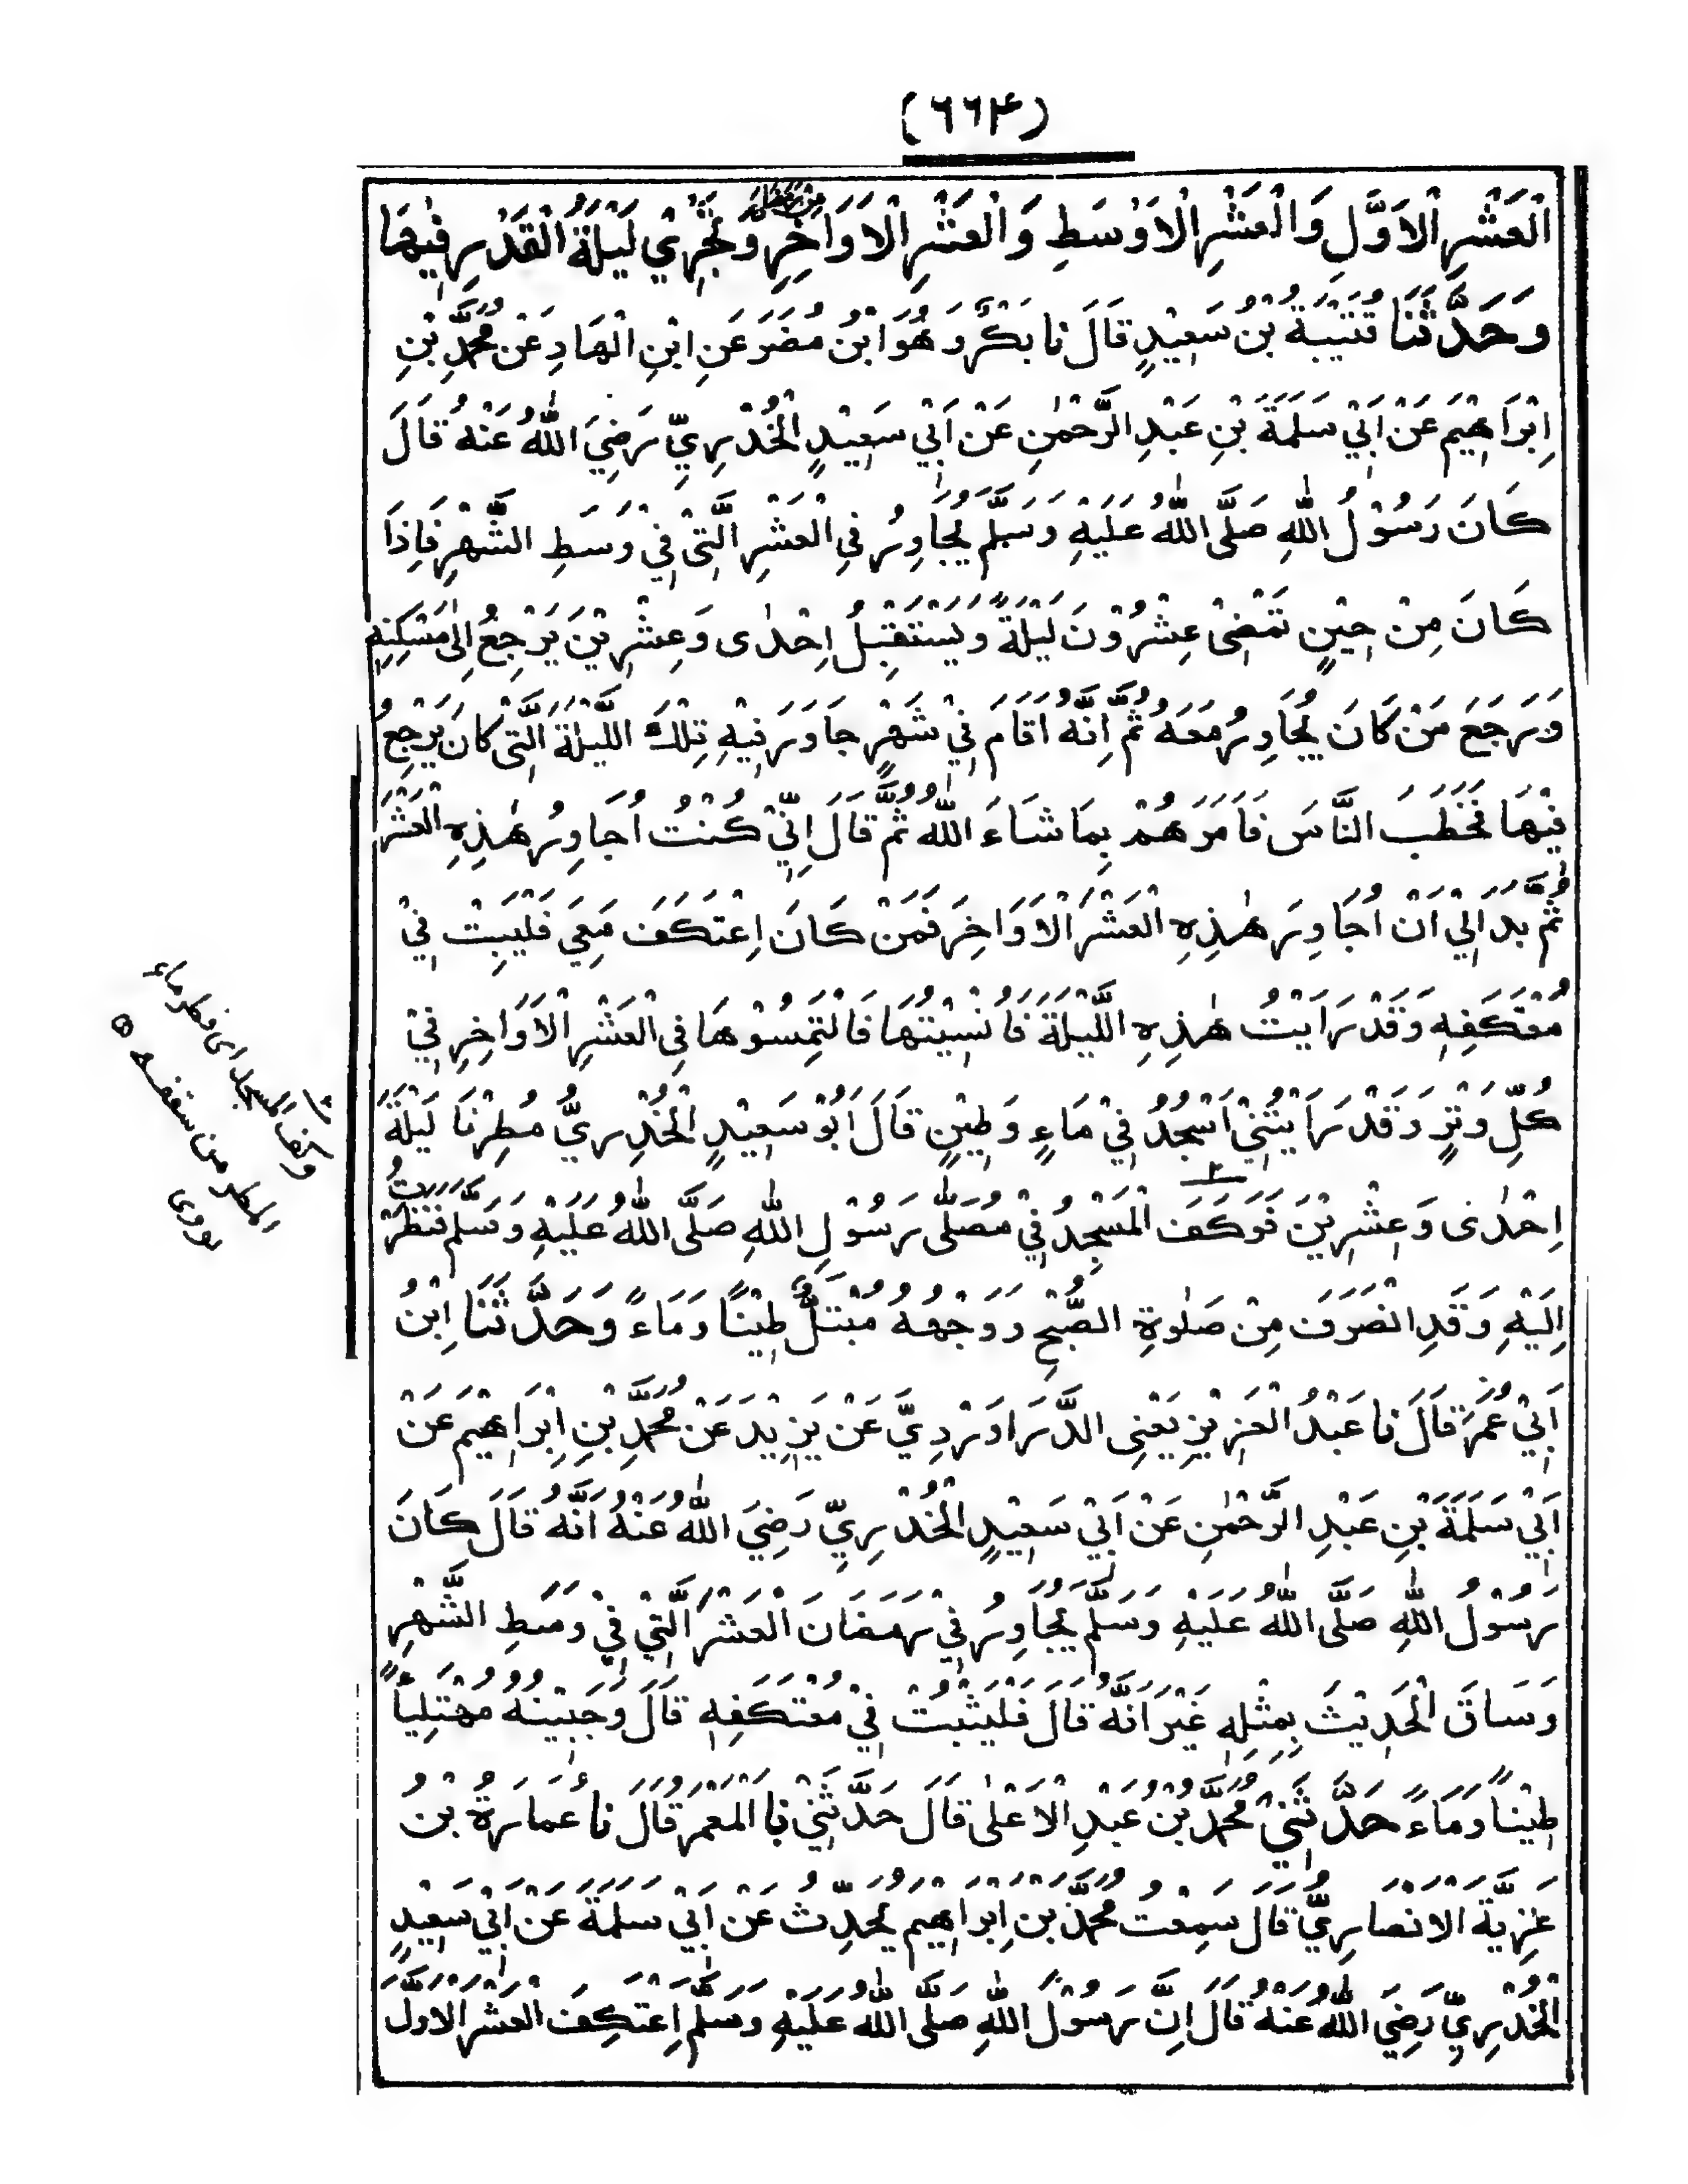 (٦٦۴)
الْعَشْرِ الْاَوَّلِ وَالْعَشْرِ الْاَوْسَطِ وَالْعَشْرِ الْاَوَاخِرِ مِنْ رَمَضَانَ وَتَحَرِّيْ لَيْلَةِ الْقَدْرِ فِيْهَا
وَحَدَّثَنَا قُتَيْبَةُ بْنُ سَعِيْدٍ قَالَ نا بَكْرٌ وَهُوَ ابْنُ مُضَرَ عَنِ ابْنِ الْهَادِ عَنْ مُحَمَّدِ بْنِ
اِبْرَاهِيْمَ عَنْ اَبِيْ سَلَمَةَ بْنِ عَبْدِ الرَّحْمٰنِ عَنْ اَبِيْ سَعِيْدٍ الْخُدْرِيِّ رَضِيَ اللّٰهُ عَنْهُ قَالَ
كَانَ رَسُوْلُ اللّٰهِ صَلَّى اللّٰهُ عَلَيْهِ وَسَلَّمَ يُجَاوِرُ فِي الْعَشْرِ الَّتِيْ فِيْ وَسَطِ الشَّهْرِ فَاِذَا
كَانَ مِنْ حِيْنٍ تَمْضِيْ عِشْرُوْنَ لَيْلَةً وَيَسْتَقْبِلُ اِحْدٰى وَعِشْرِيْنَ يَرْجِعُ اِلٰى مَسْكَنِهٖ
وَرَجَعَ مَنْ كَانَ يُجَاوِرُ مَعَهُ ثُمَّ اِنَّهُ اَقَامَ فِيْ شَهْرٍ جَاوَرَ فِيْهِ تِلْكَ اللَّيْلَةَ الَّتِيْ كَانَ يَرْجِعُ
فِيْهَا فَخَطَبَ النَّاسَ فَاَمَرَهُمْ بِمَا شَاءَ اللّٰهُ ثُمَّ قَالَ اِنِّيْ كُنْتُ اُجَاوِرُ هٰذِهِ الْعَشْرَ
ثُمَّ بَدَا لِيْ اَنْ اُجَاوِرَ هٰذِهِ الْعَشْرَ الْاَوَاخِرَ فَمَنْ كَانَ اِعْتَكَفَ مَعِيَ فَلْيَبِتْ فِيْ
مُعْتَكَفِهٖ وَقَدْ رَاَيْتُ هٰذِهِ اللَّيْلَةَ فَاُنْسِيْتُهَا فَالْتَمِسُوْهَا فِي الْعَشْرِ الْاَوَاخِرِ فِيْ
كُلِّ وِتْرٍ وَقَدْ رَاَيْتُنِيْ اَسْجُدُ فِيْ مَاءٍ وَطِيْنٍ قَالَ اَبُوْ سَعِيْدٍ الْخُدْرِيُّ مُطِرْنَا لَيْلَةَ
اِحْدٰى وَعِشْرِيْنَ فَوَكَفَ الْمَسْجِدُ فِيْ مُصَلّٰى رَسُوْلِ اللّٰهِ صَلَّى اللّٰهُ عَلَيْهِ وَسَلَّمَ فَنَظَرْتُ
اِلَيْهِ وَقَدِ انْصَرَفَ مِنْ صَلٰوةِ الصُّبْحِ وَوَجْهُهُ مُبْتَلٌّ طِيْنًا وَمَاءً وَحَدَّثَنَا ابْنُ
اَبِيْ عُمَرَ قَالَ نا عَبْدُ الْعَزِيْزِ يَعْنِى الدَّرَاوَرْدِيَّ عَنْ يَزِيْدَ عَنْ مُحَمَّدِ بْنِ اِبْرَاهِيْمَ عَنْ
اَبِيْ سَلَمَةَ بْنِ عَبْدِ الرَّحْمٰنِ عَنْ اَبِيْ سَعِيْدٍ الْخُدْرِيِّ رَضِيَ اللّٰهُ عَنْهُ اَنَّهُ قَالَ كَانَ
رَسُوْلُ اللّٰهِ صَلَّى اللّٰهُ عَلَيْهِ وَسَلَّمَ يُجَاوِرُ فِيْ رَمَضَانَ الْعَشْرَ الَّتِيْ فِيْ وَسَطِ الشَّهْرِ
وَسَاقَ الْحَدِيْثَ بِمِثْلِهٖ غَيْرَ اَنَّهُ قَالَ فَلْيَثْبُتْ فِيْ مُعْتَكَفِهٖ قَالَ وَجَبِيْنُهُ مُمْتَلِئًا
طِيْنًا وَمَاءً حَدَّثَنِيْ مُحَمَّدُ بْنُ عَبْدِ الْاَعْلٰى قَالَ حَدَّثَنِيْ نا الْمُعْتَمِرُ قَالَ نا عُمَارَةُ بْنُ
غَزِيَّةَ الْاَنْصَارِيُّ قَالَ سَمِعْتُ مُحَمَّدَ بْنَ اِبْرَاهِيْمَ يُحَدِّثُ عَنْ اَبِيْ سَلَمَةَ عَنْ اَبِيْ سَعِيْدٍ
الْخُدْرِيِّ رَضِيَ اللّٰهُ عَنْهُ قَالَ اِنَّ رَسُوْلَ اللّٰهِ صَلَّى اللّٰهُ عَلَيْهِ وَسَلَّمَ اِعْتَكَفَ الْعَشْرَ الْاَوَّلَ
وكف المسجد اى قطر ماء
المطر من سقفه ه
نووى